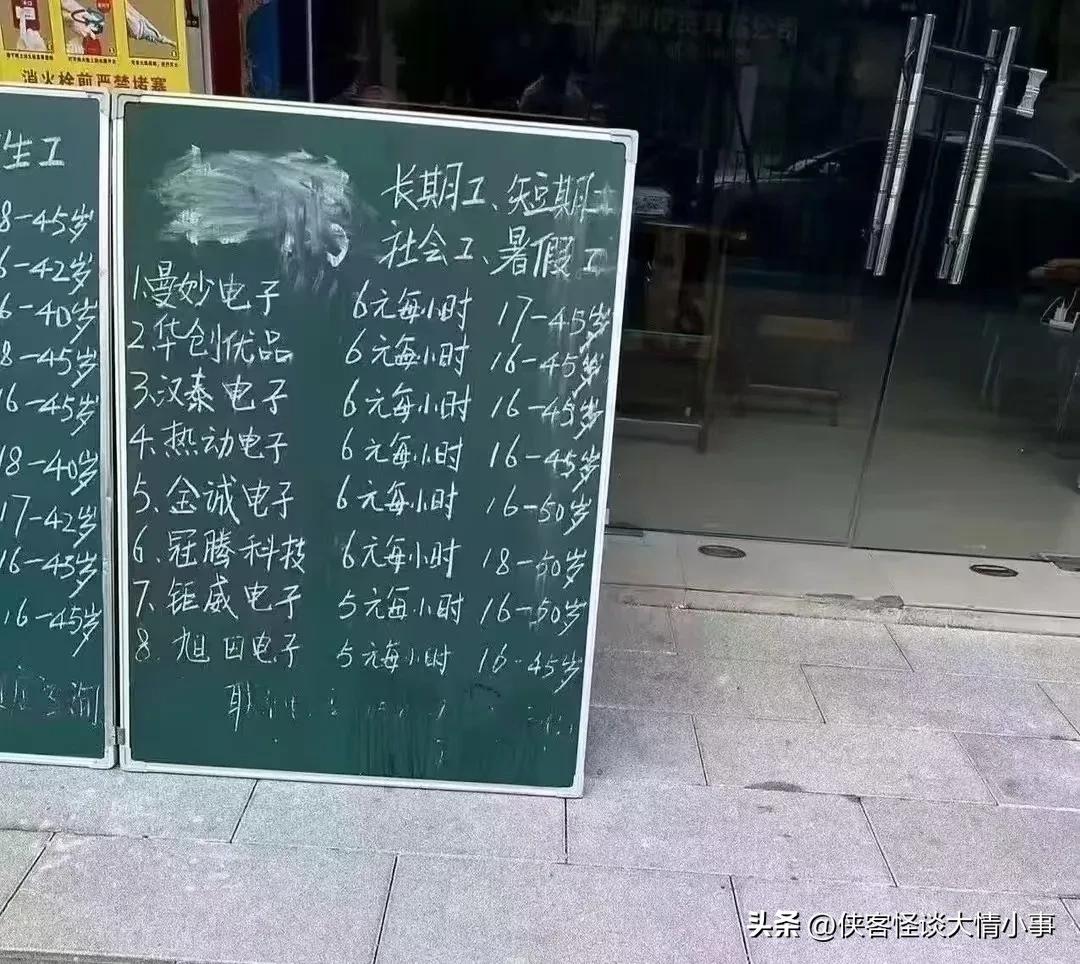 消火栓前严禁堵塞
生工
8-45岁
6-42岁
6-40岁
8-45岁
16-45岁
18-40岁
17-42岁
16-45岁
16-45岁
长期工、短期工
社会工、暑假工
1.曼妙电子 6元每小时 17-45岁
2.华创优品 6元每小时 16-45岁
3.汉泰电子 6元每小时 16-45岁
4.热动电子 6元每小时 16-45岁
5.金诚电子 6元每小时 16-50岁
6.冠腾科技 6元每小时 18-50岁
7.钜威电子 5元每小时 16-50岁
8.旭田电子 5元每小时 16-45岁
头条 @侠客怪谈大情小事